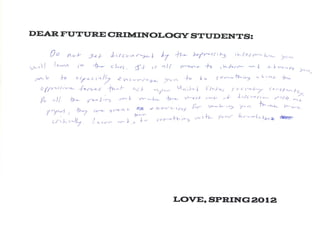 DEAR FUTURE CRIMINOLOGY STUDENTS:
Do not get discouraged by the depressing information you
will learn in the class. It is all meant to inform and educate you,
and to especially encourage you to be something about the
oppressive forces that act upon United States society constantly.
Do all the and make the most out of discussion
papers, they are great exercises for you to more
critically learn and, do something with your knowledge
LOVE, SPRING 2012